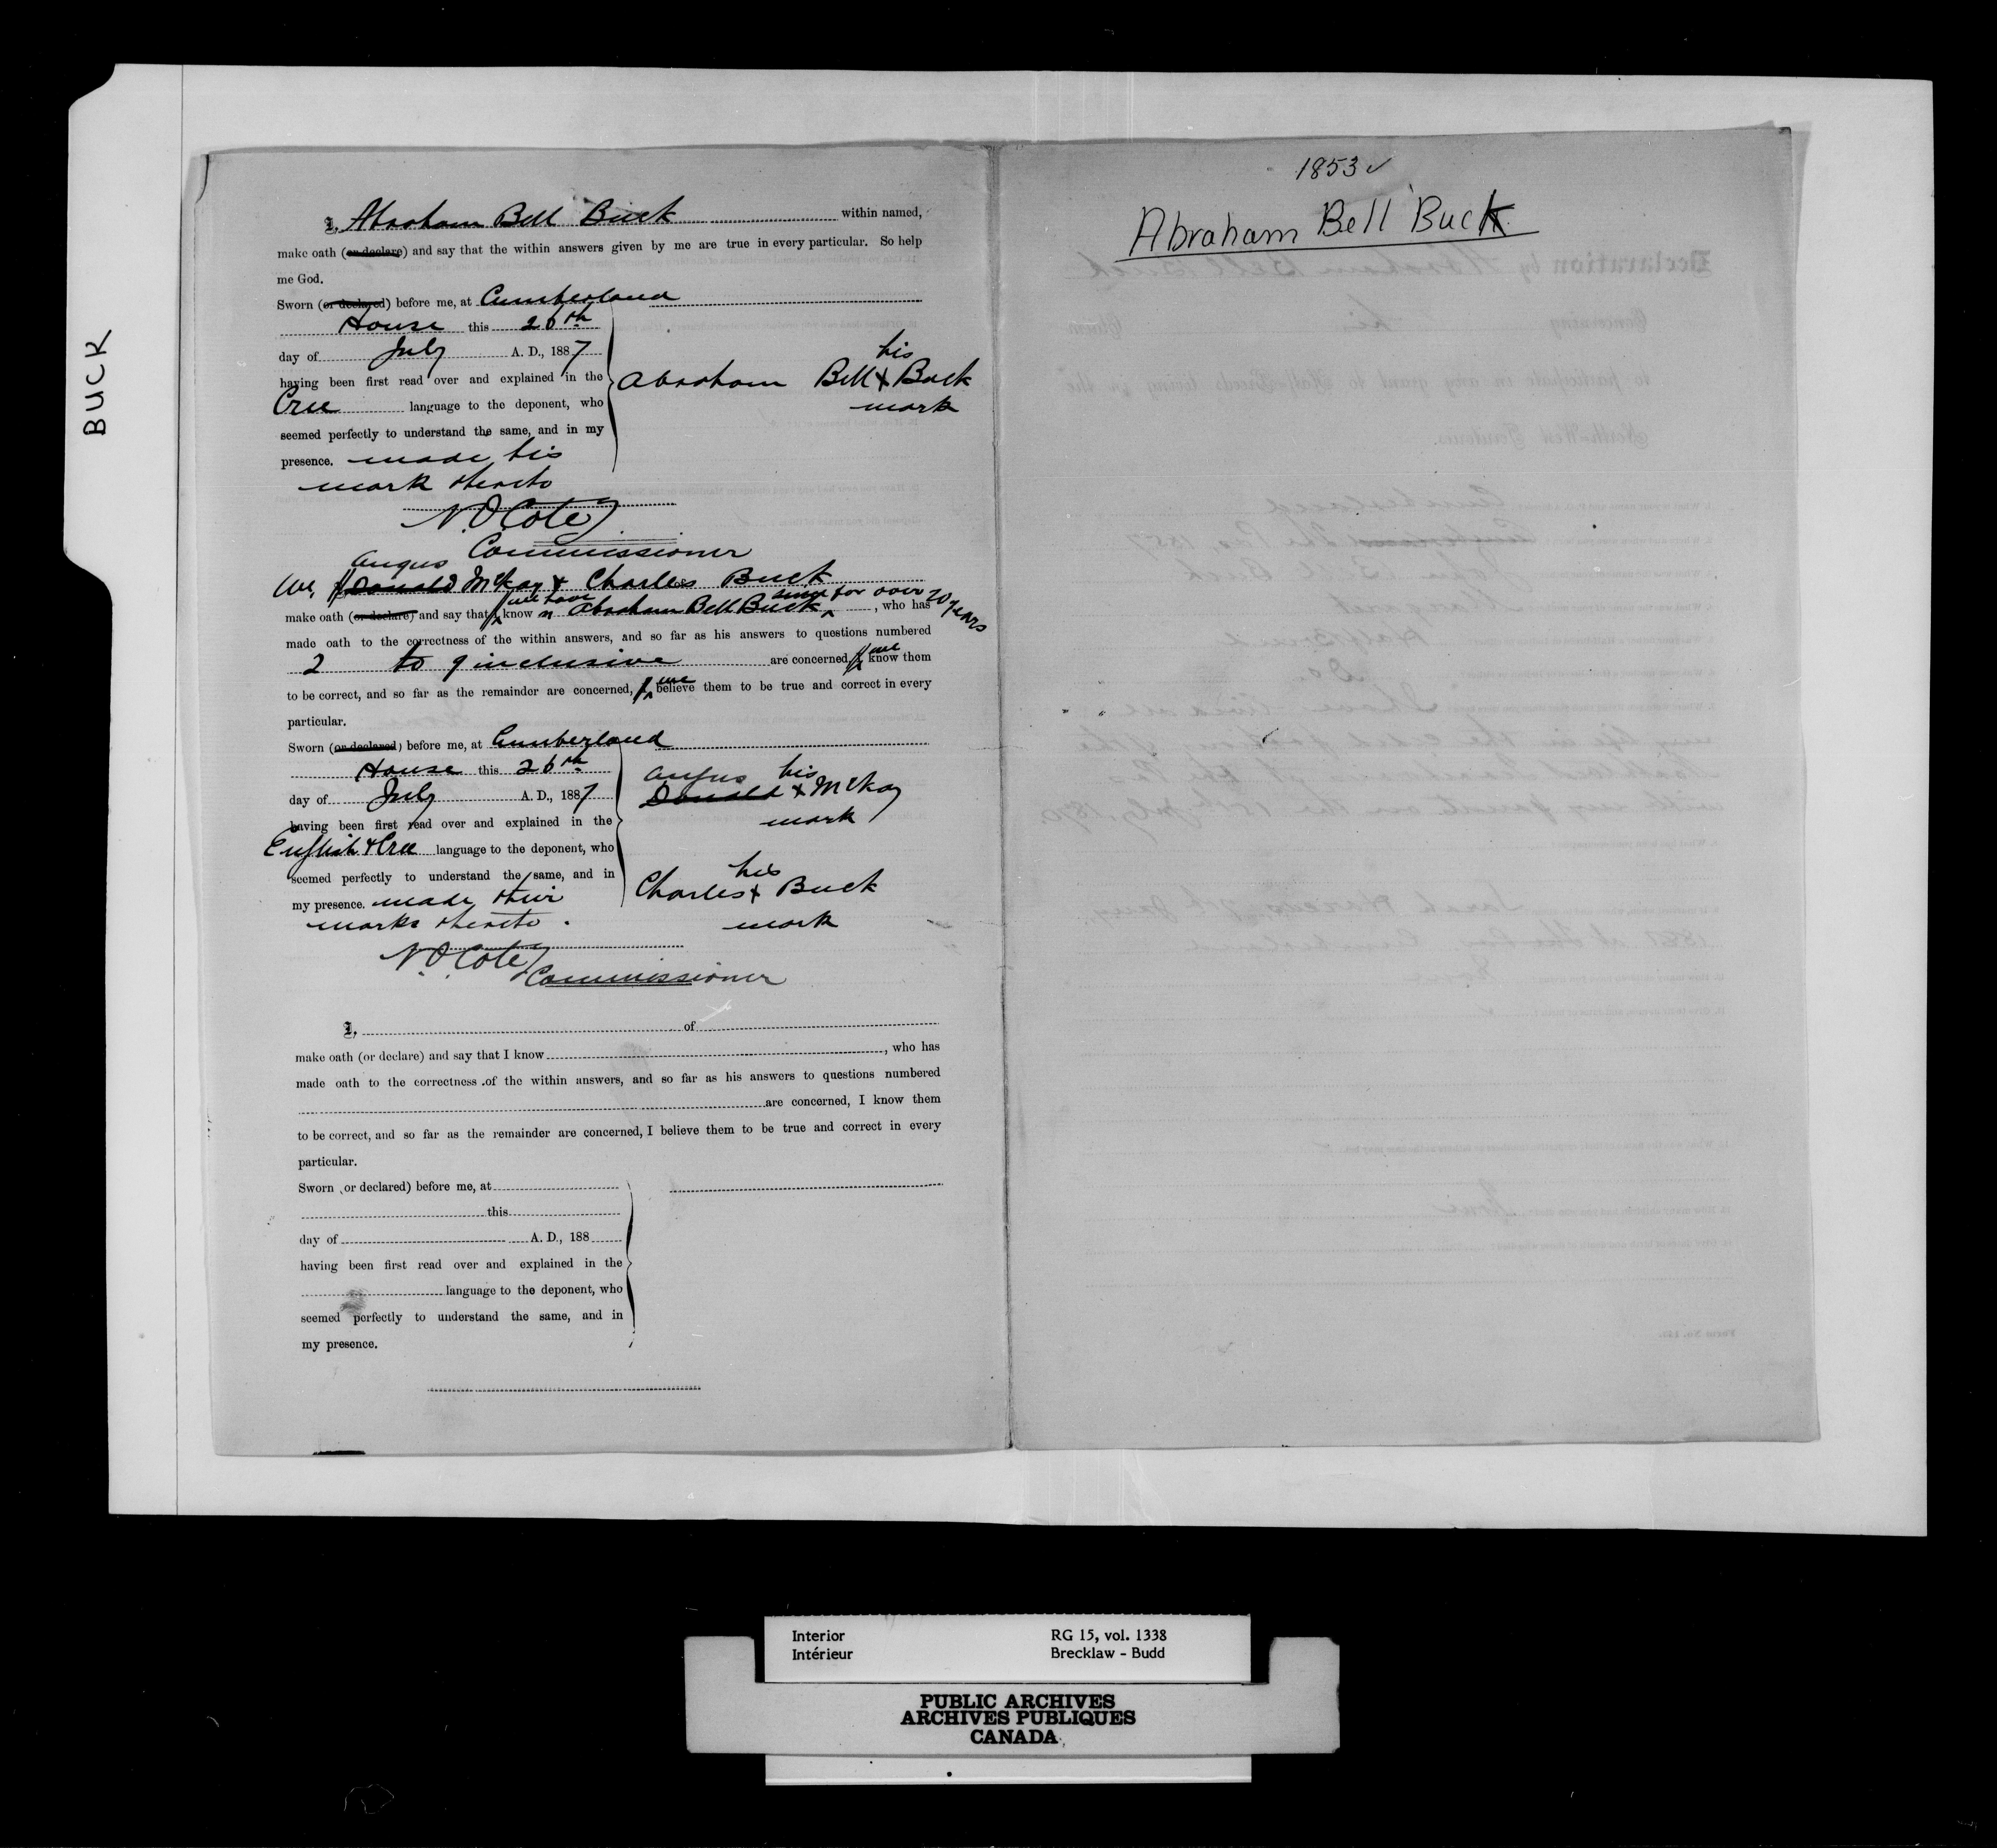 BUCK
I, Abraham Bell Buck within named,
make oath (or declare) and say that the within answers given by me are true in every particular. So help
me God.
Sworn (or declared) before me, at Cumberland
House this 26th
day of July A. D., 1887
having been first read over and explained in the
Cree language to the deponent, who
seemed perfectly to understand the same, and in my
presence. made his
mark thereto
his
Abraham Bell x Buck
mark
N.O. Cote
Commissioner
Angus
We, I Donald McKay & Charles Buck
make oath (or declare) and say that I we have know n Abraham Bell Buck since for over 20 years, who has
made oath to the correctness of the within answers, and so far as his answers to questions numbered
2 to 9 inclusive are concerned, I we know them
to be correct, and so far as the remainder are concerned, I we believe them to be true and correct in every
particular.
Sworn (or declared) before me, at Cumberland
House this 26th
day of July A. D., 1887
having been first read over and explained in the
English & Cree language to the deponent, who
seemed perfectly to understand the same, and in
my presence. made their
marks thereto.
Angus his
Donald x McKay
mark
his
Charles x Buck
mark
N.O. Cote
Commissioner
I, of
make oath (or declare) and say that I know , who has
made oath to the correctness of the within answers, and so far as his answers to questions numbered
are concerned, I know them
to be correct, and so far as the remainder are concerned, I believe them to be true and correct in every
particular.
Sworn (or declared) before me, at
this
day of A. D., 188
having been first read over and explained in the
language to the deponent, who
seemed perfectly to understand the same, and in
my presence.
1853 ✓
Abraham Bell Buck
Interior
Intérieur
RG 15, vol. 1338
Brecklaw - Budd
PUBLIC ARCHIVES
ARCHIVES PUBLIQUES
CANADA